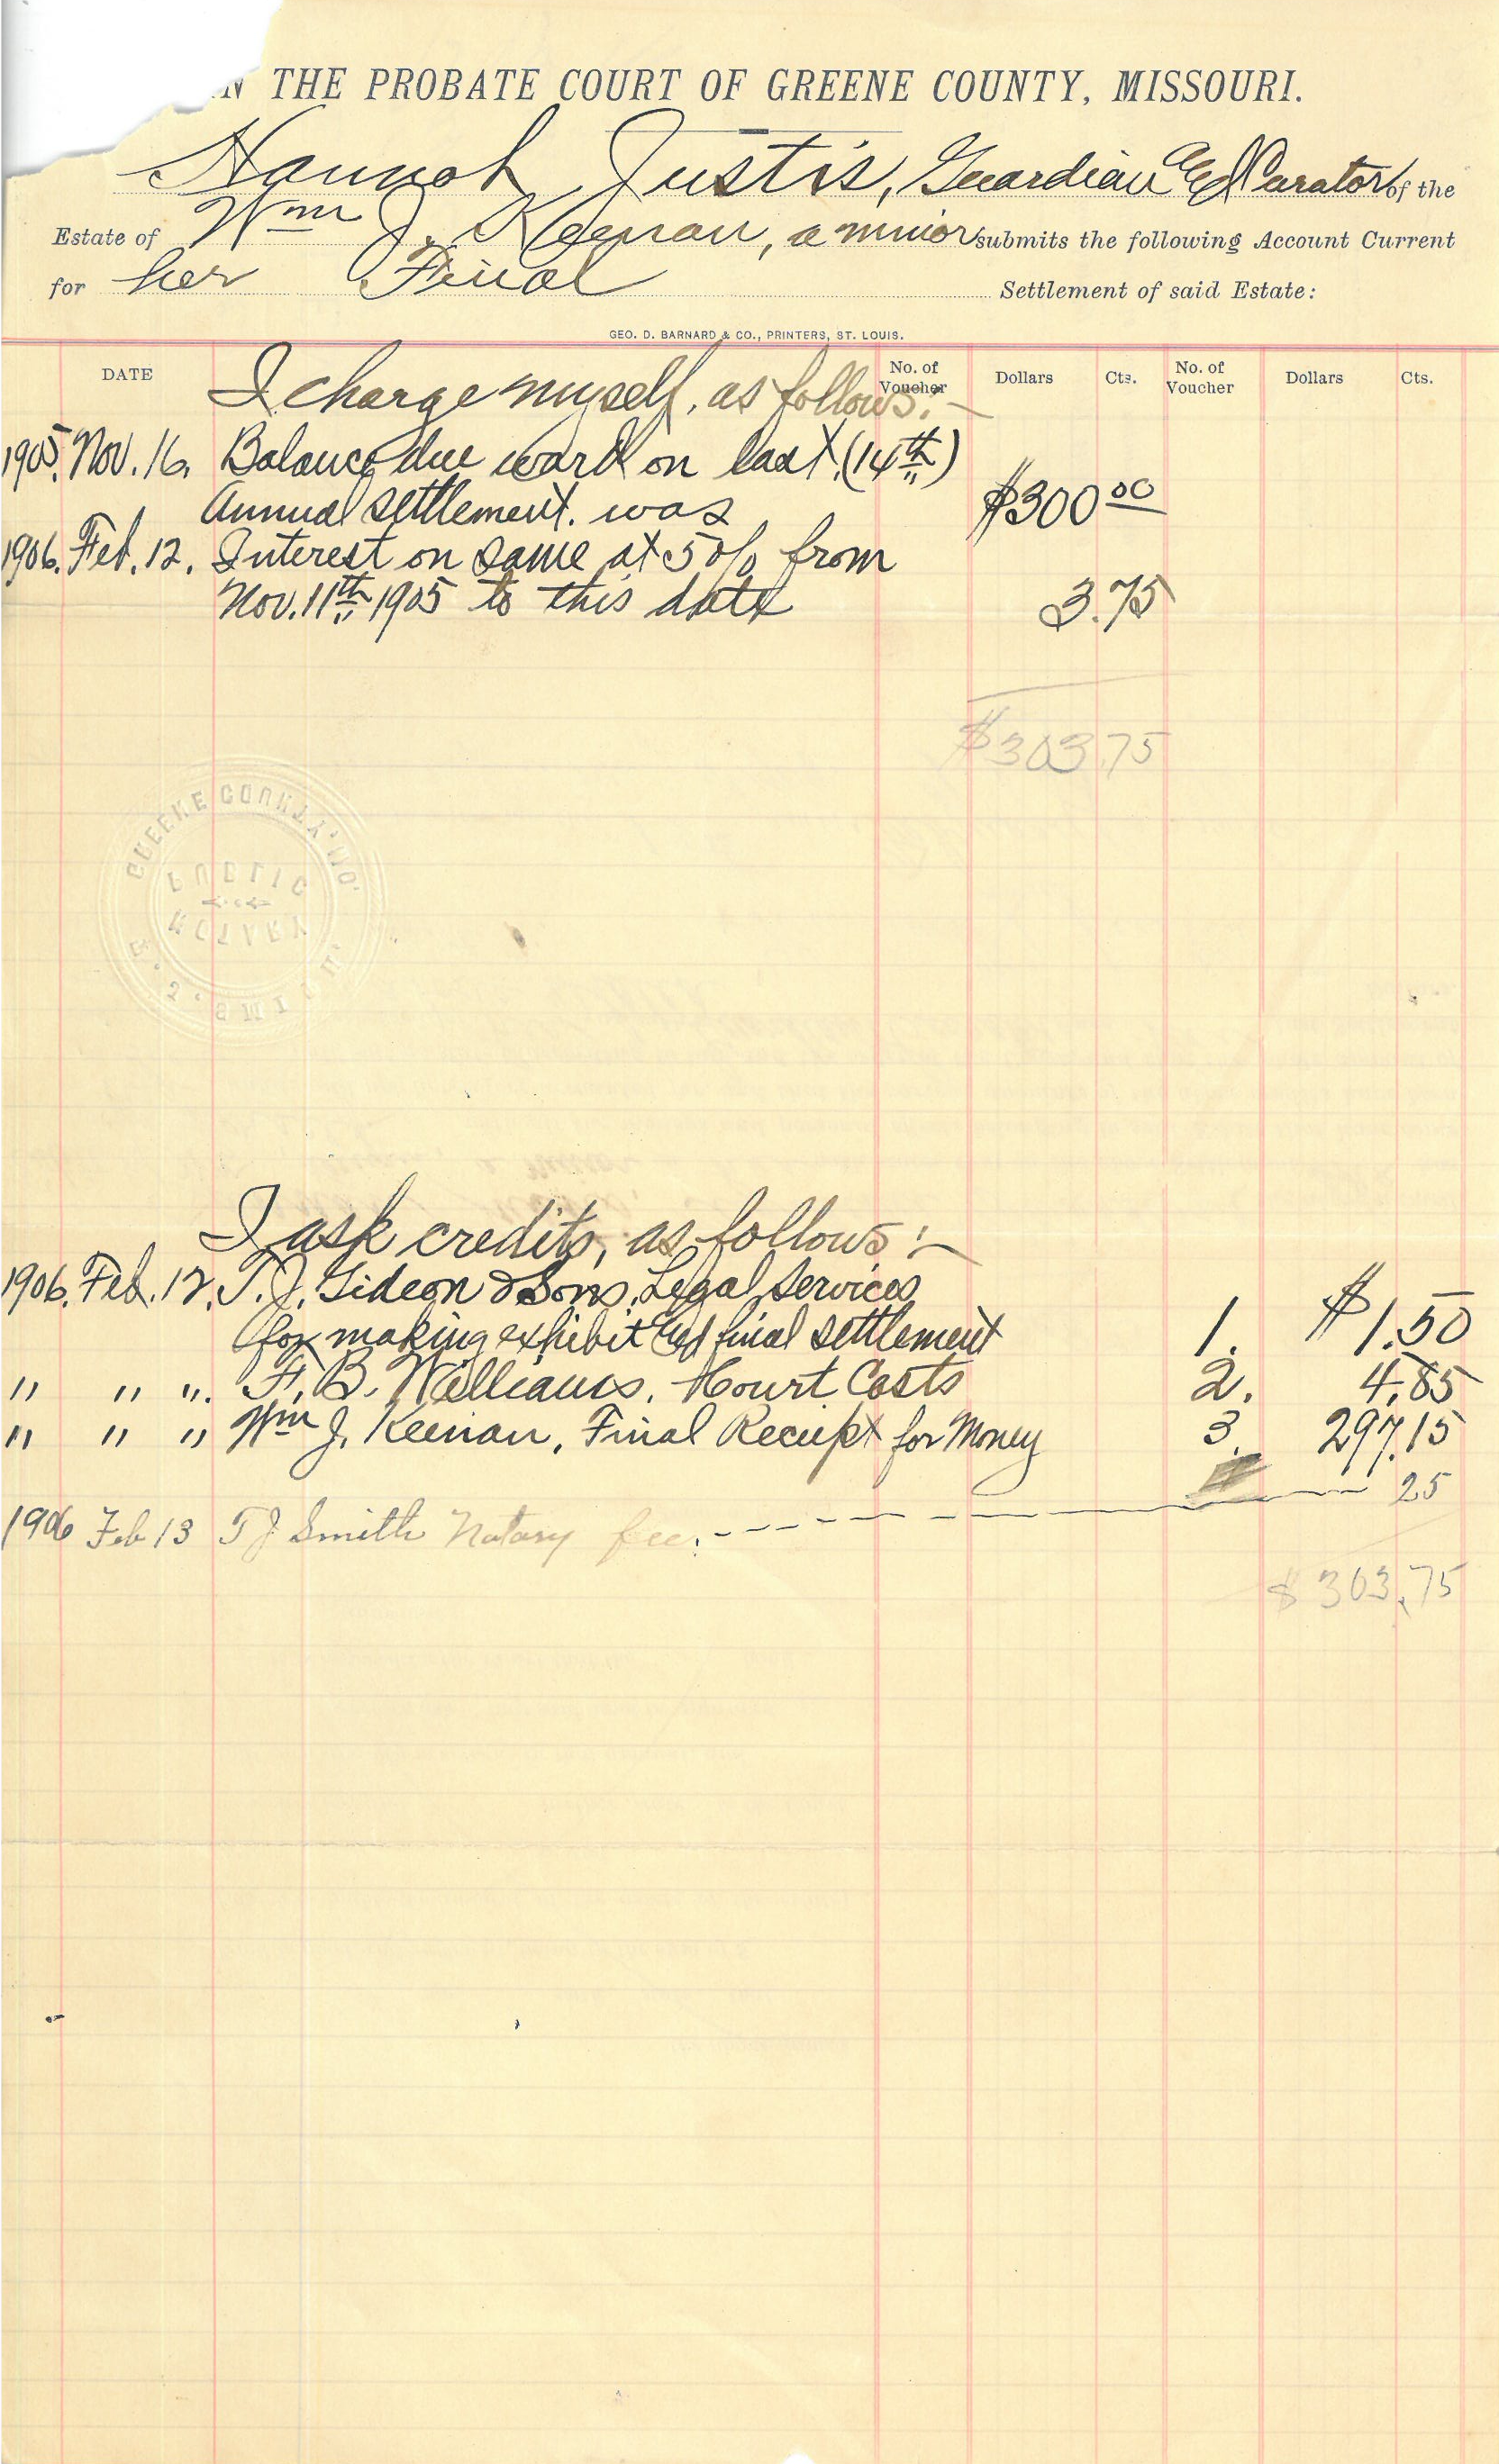 N THE PROBATE COURT OF GREENE COUNTY, MISSOURI.
Hannah Justis, Guardian and Curator of the
Estate of Wm J. Keenan, a minor submits the following Account Current
for her Final Settlement of said Estate:
GEO. D. BARNARD & CO., PRINTERS, ST. LOUIS.
DATE No. of Voucher Dollars Cts. No. of Voucher Dollars Cts.
I charge myself, as follows:-
1905. Nov. 16. Balance due ward on last (14th)
Annual settlement. was $300 00
1906. Feb. 12. Interest on same at 5% from
Nov. 11th 1905 to this date 3.75
$303.75
GREENE COUNTY, MO.
PUBLIC
NOTARY
I ask credits, as follows:-
1906. Feb. 12. T. J. Gideon & Sons, Legal Services
for making exhibit and final settlement 1. $1.50
" " ". F. B. Williams, Court Costs 2. 4.85
" " " Wm J. Keenan, Final Receipt for Money 3. 297.15
1906 Feb 13 T J Smith Notary fee. 25
$303.75